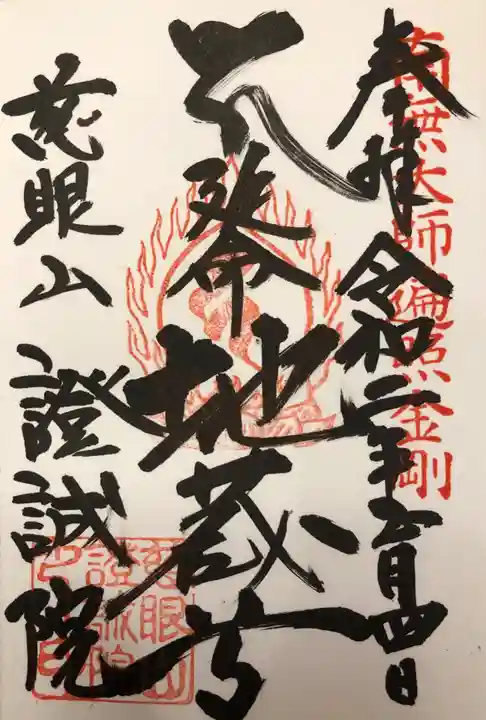 南無大師遍照金剛
奉拝 令和二年 月四日
延命地蔵尊
慈眼山 證誠院
慈眼山
證誠院
之印